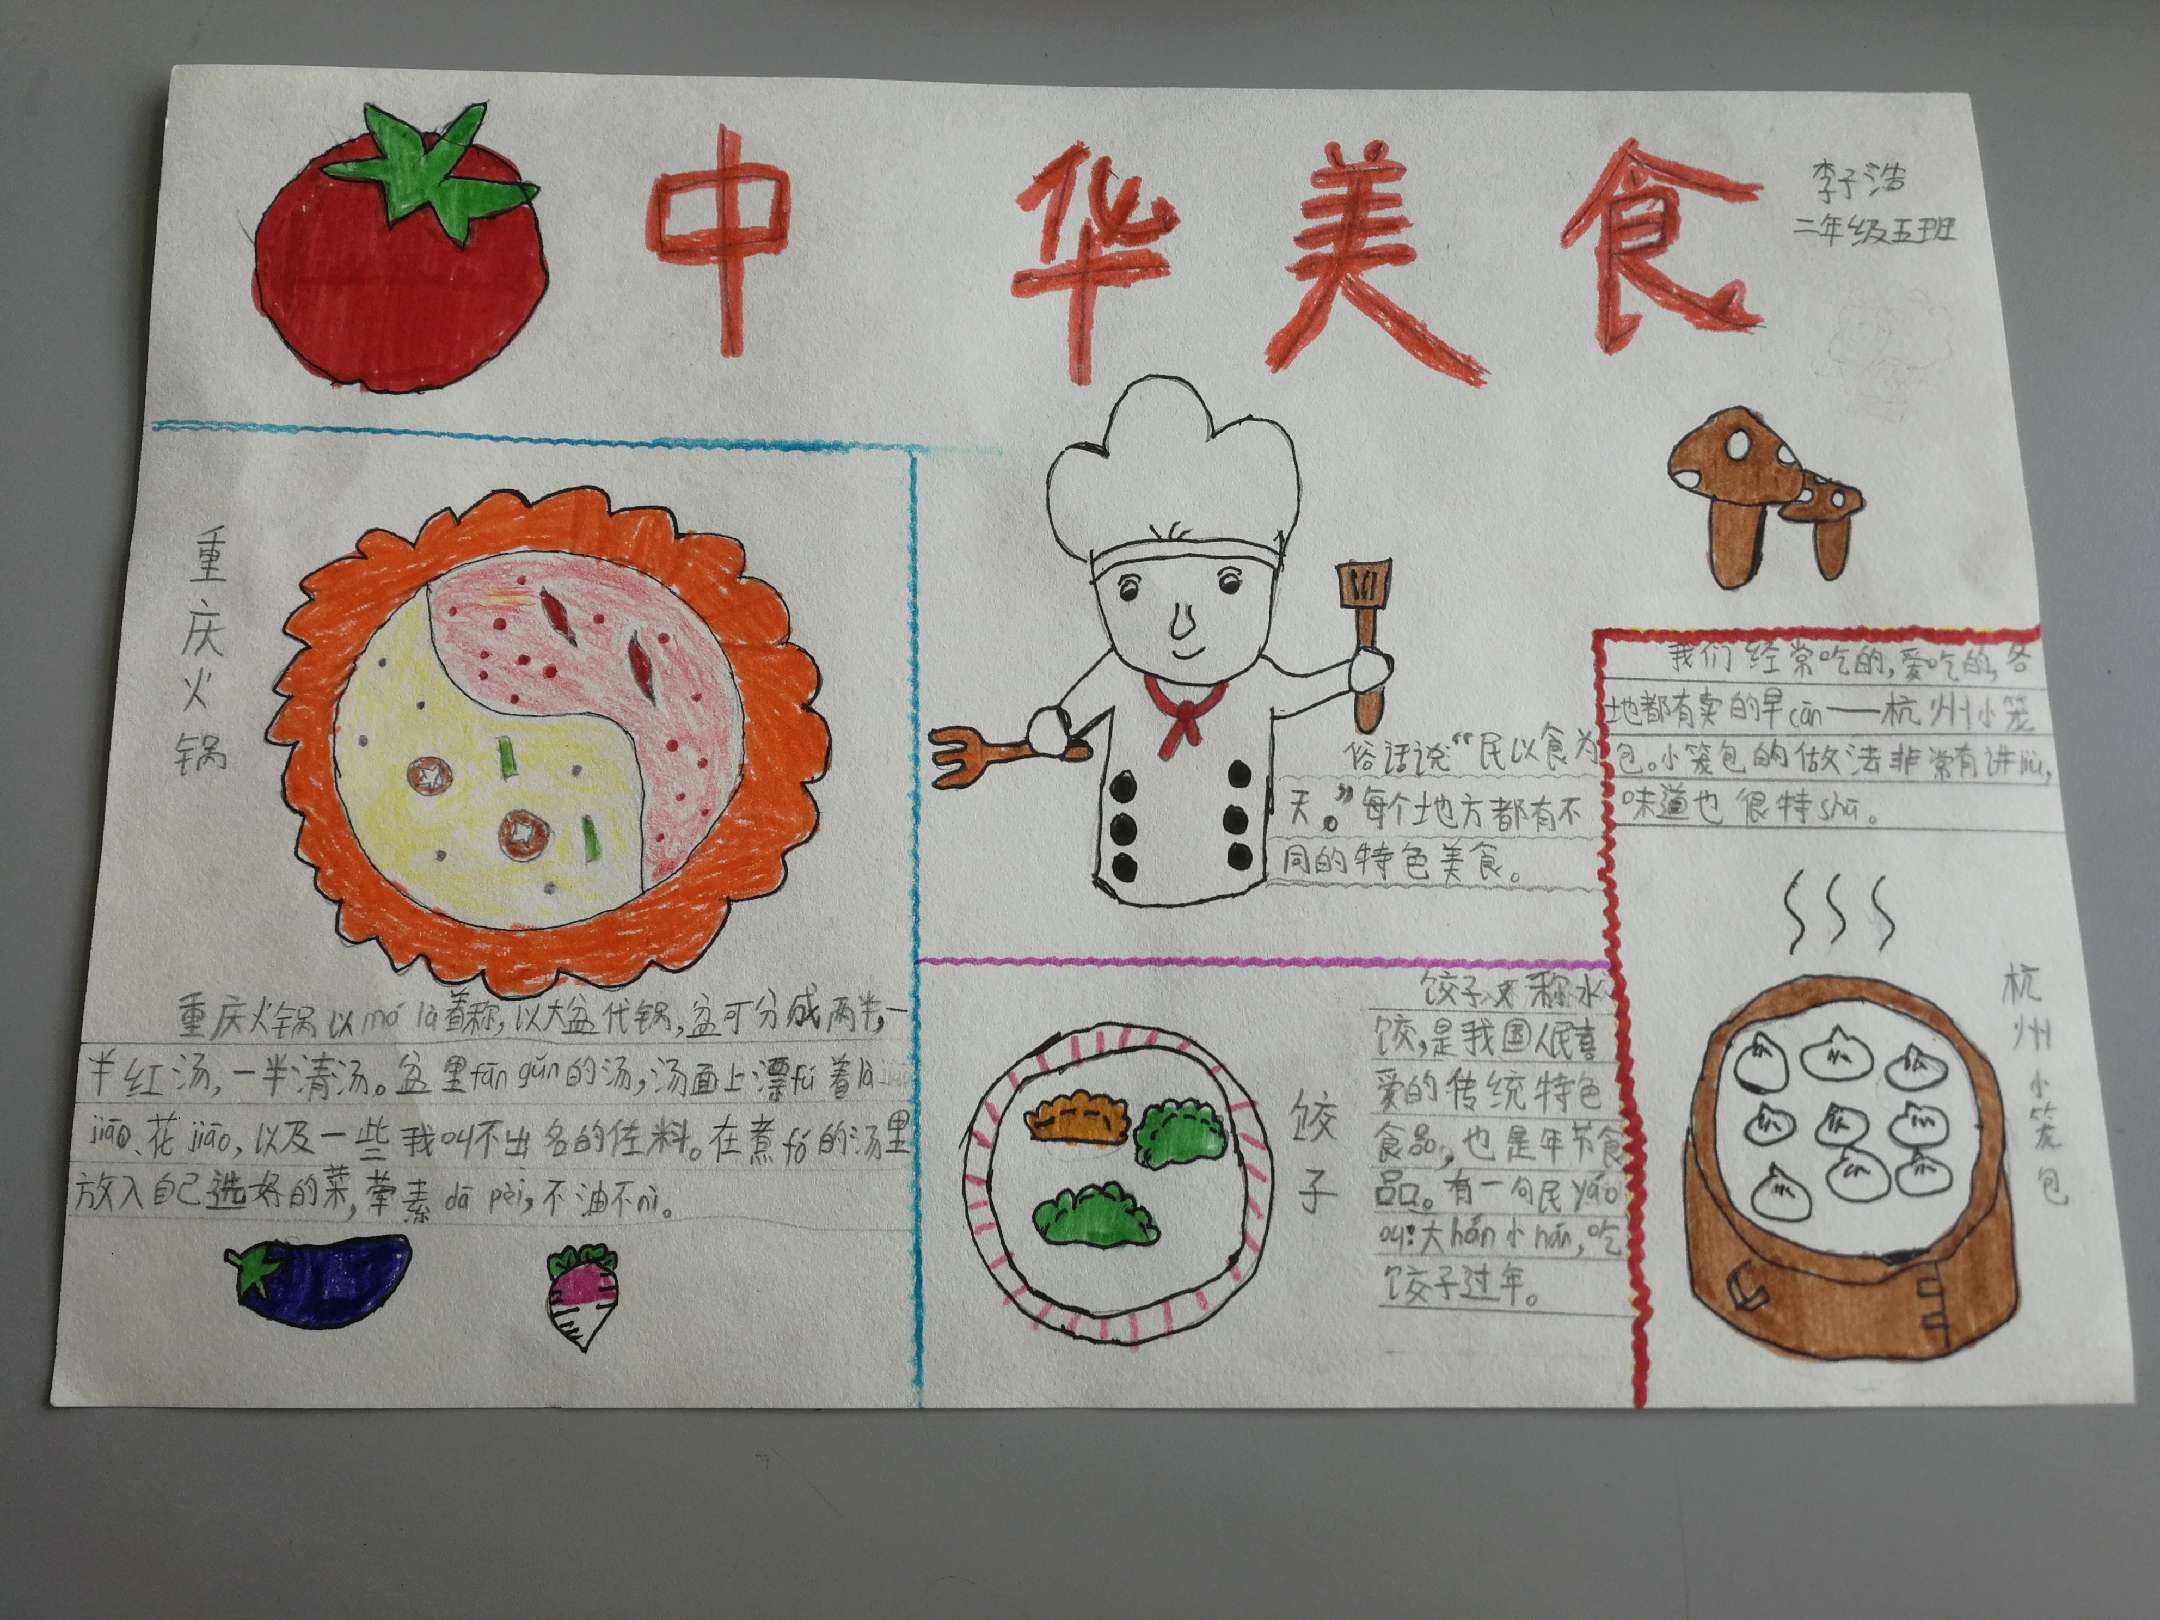 中华美食
李子浩
二年级五班
重庆火锅
重庆火锅以má là着称,以大盆代锅,盆可分成两半,一
半红汤,一半清汤。盆里fān gǔn的汤,汤面上漂fú着là
jiāo、花jiāo,以及一些我叫不出名的佐料。在煮fèi的汤里
放入自己选好的菜,荤素dā pèi,不油不nì。
俗话说“民以食为
天。”每个地方都有不
同的特色美食。
饺子
饺子又称水
饺,是我国人民喜
爱的传统特色
食品,也是年节食
品。有一句民yáo
叫:大hán小hán,吃
饺子过年。
我们经常吃的,爱吃的,各
地都有卖的早cān——杭州小笼
包。小笼包的做法非常有讲jiū,
味道也很特shū。
杭州小笼包